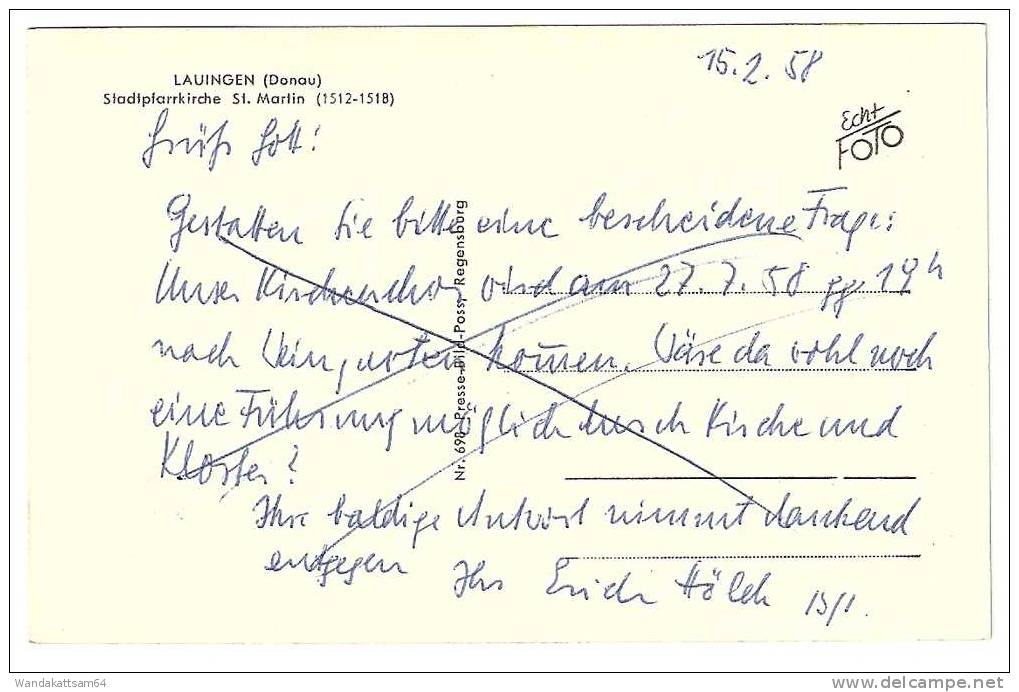 LAUINGEN (Donau)
Stadtpfarrkirche St. Martin (1512-1518)
15.2.58
Echt
FOTO
Grüß Gott!
Gestatten Sie bitte eine bescheidene Frage:
Unser Kirchenchor wird am 27.7.58 gg. 19h
nach Weingarten kommen. Wäre da wohl noch
eine Führung möglich durch Kirche und
Kloster?
Ihre baldige Antwort nimmt dankend
entgegen Ihr Erich Hölch
Nr. 698 Presse-Bild-Poss, Regensburg
Wandakattsam64
delcampe.net